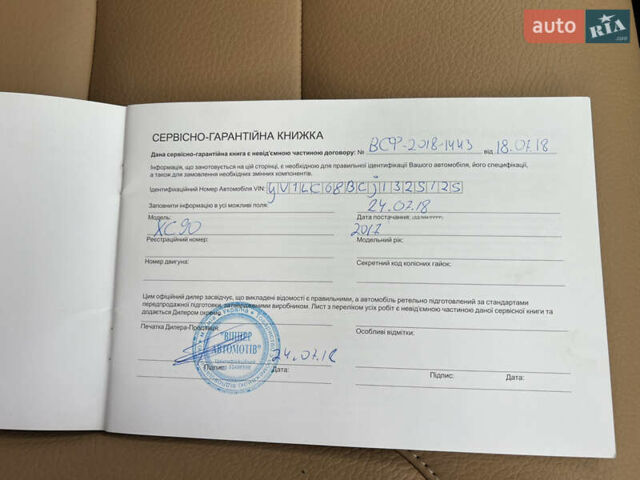 auto RIA.com
СЕРВІСНО-ГАРАНТІЙНА КНИЖКА
Дана сервісно-гарантійна книга є невід'ємною частиною договору: № ВСФ-2018-1443 від 18.07.18
Інформація, що занотовується на цій сторінці, є необхідною для правильної ідентифікації Вашого автомобіля, його специфікації,
а також для замовлення необхідних змінних компонентів.
Ідентифікаційний Номер Автомобіля VIN: YV1LC68BCJ1325125
Заповнити інформацію в усі можливі поля: 24.07.18
Модель: XC90 Дата постачання:
Реєстраційний номер: Модельний рік: 2017
Номер двигуна: Секретний код колісних гайок:
Цим офіційний дилер засвідчує, що викладені відомості є правильними, а автомобіль ретельно підготовлений за стандартами
передпродажної підготовки, затвердженими виробником. Лист з переліком усіх робіт є невід'ємною частиною даної сервісної книги та
додається Дилером окремо.
Печатка Дилера-Продавця: Особливі відмітки:
Україна
"ВІННЕР
АВТОМОТІВ"
24.07.18
Підпис: Дата: Підпис: Дата: